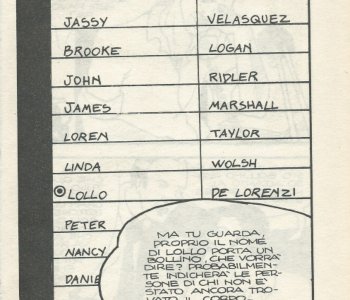 JASSY VELASQUEZ
BROOKE LOGAN
JOHN RIDLER
JAMES MARSHALL
LOREN TAYLOR
LINDA WOLSH
LOLLO DE LORENZI
PETER
NANCY
DANIE
MA TU GUARDA,
PROPRIO IL NOME
DI LOLLO PORTA UN
BOLLINO, CHE VORRÀ
DIRE? PROBABILMEN-
TE INDICHERÀ LE PER-
SONE DI CHI NON È
STATO ANCORA TRO-
VATO IL CORPO